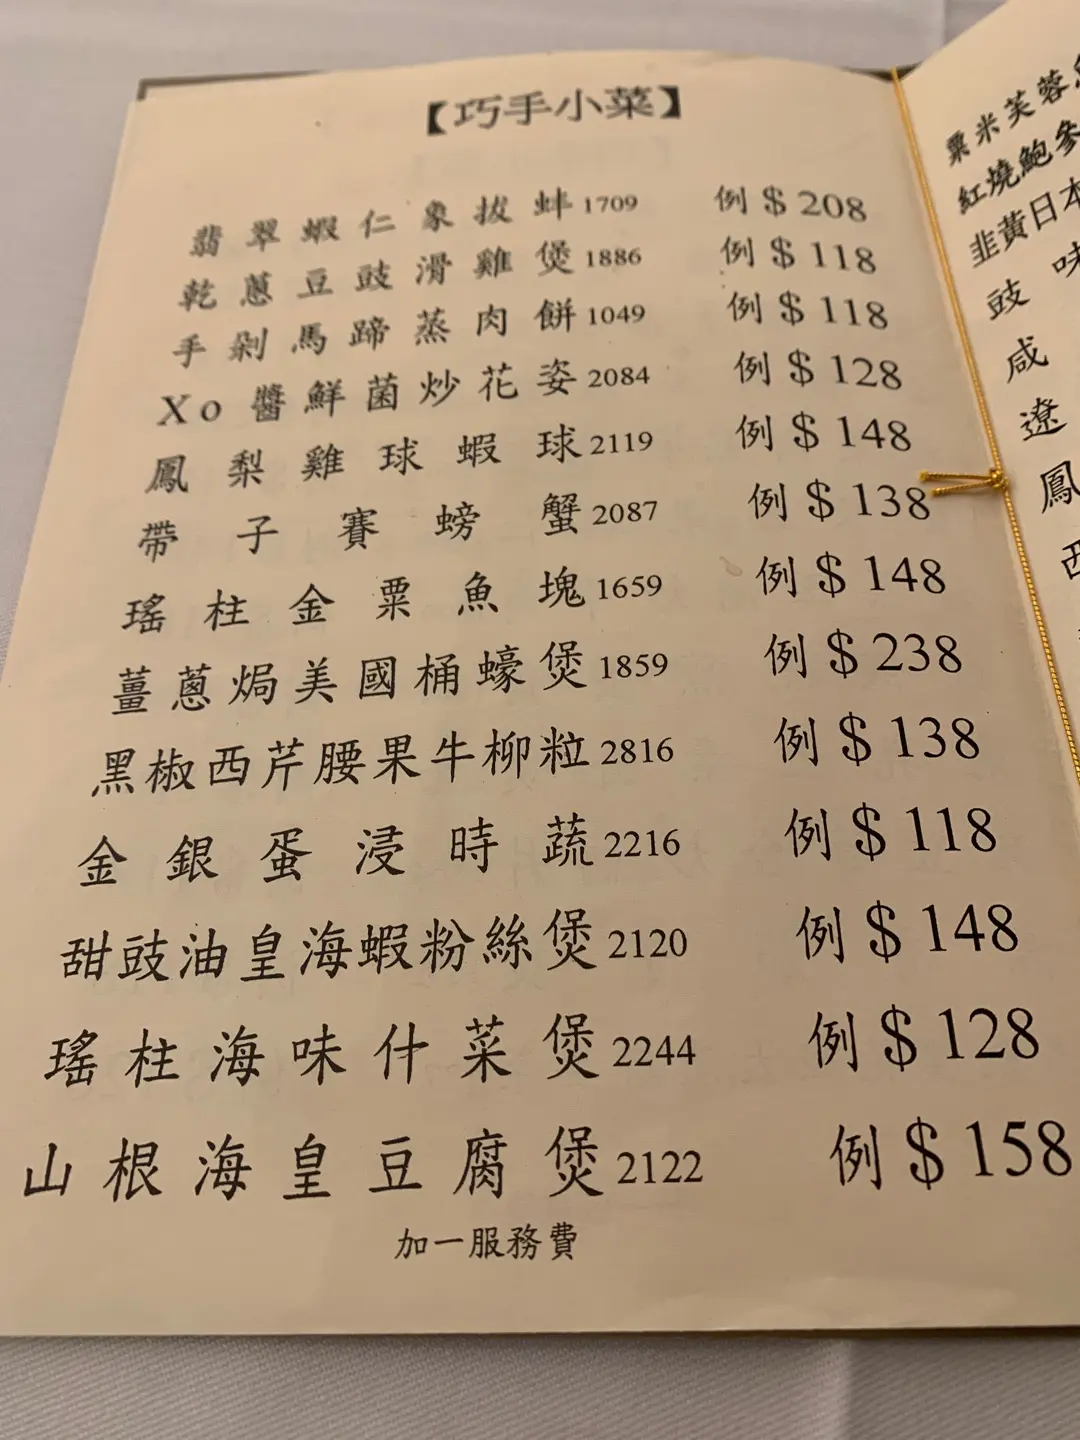 【巧手小菜】
翡翠蝦仁象拔蚌1709 例$208
乾蔥豆豉滑雞煲1886 例$118
手剁馬蹄蒸肉餅1049 例$118
Xo醬鮮菌炒花姿2084 例$128
鳳梨雞球蝦球2119 例$148
帶子賽螃蟹2087 例$138
瑤柱金粟魚塊1659 例$148
薑蔥焗美國桶蠔煲1859 例$238
黑椒西芹腰果牛柳粒2816 例$138
金銀蛋浸時蔬2216 例$118
甜豉油皇海蝦粉絲煲2120 例$148
瑤柱海味什菜煲2244 例$128
山根海皇豆腐煲2122 例$158
加一服務費
粟米芙蓉
紅燒鮑參
韭黃日本
豉味
咸
遼
鳳
西